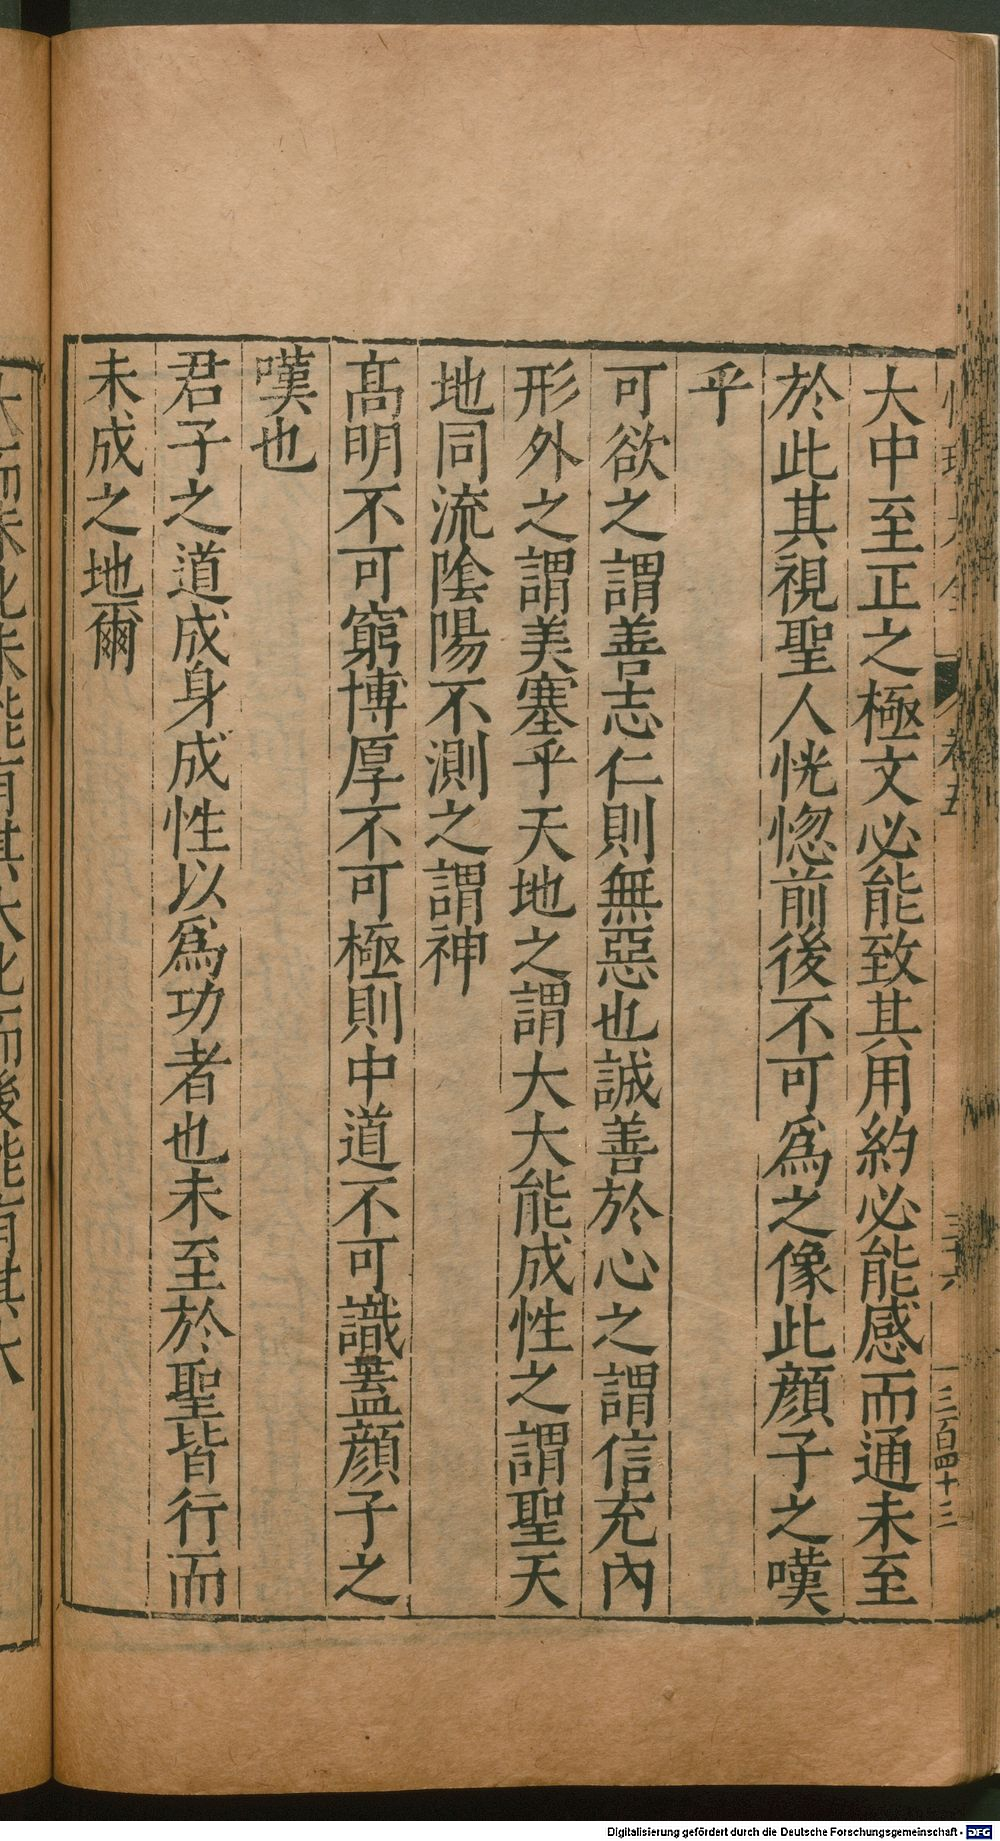 大中至正之極文必能致其用約必能感而通未至
於此其視聖人恍惚前後不可爲之像此顔子之嘆
乎
可欲之謂善志仁則無惡也誠善於心之謂信充內
形外之謂美塞乎天地之謂大大能成性之謂聖天
地同流陰陽不測之謂神
髙明不可窮博厚不可極則中道不可識蓋顔子之
嘆也
君子之道成身成性以爲功者也未至於聖皆行而
未成之地爾
大而未化未能有其大化而後能有其大
Digitalisierung gefördert durch die Deutsche Forschungsgemeinschaft - DFG